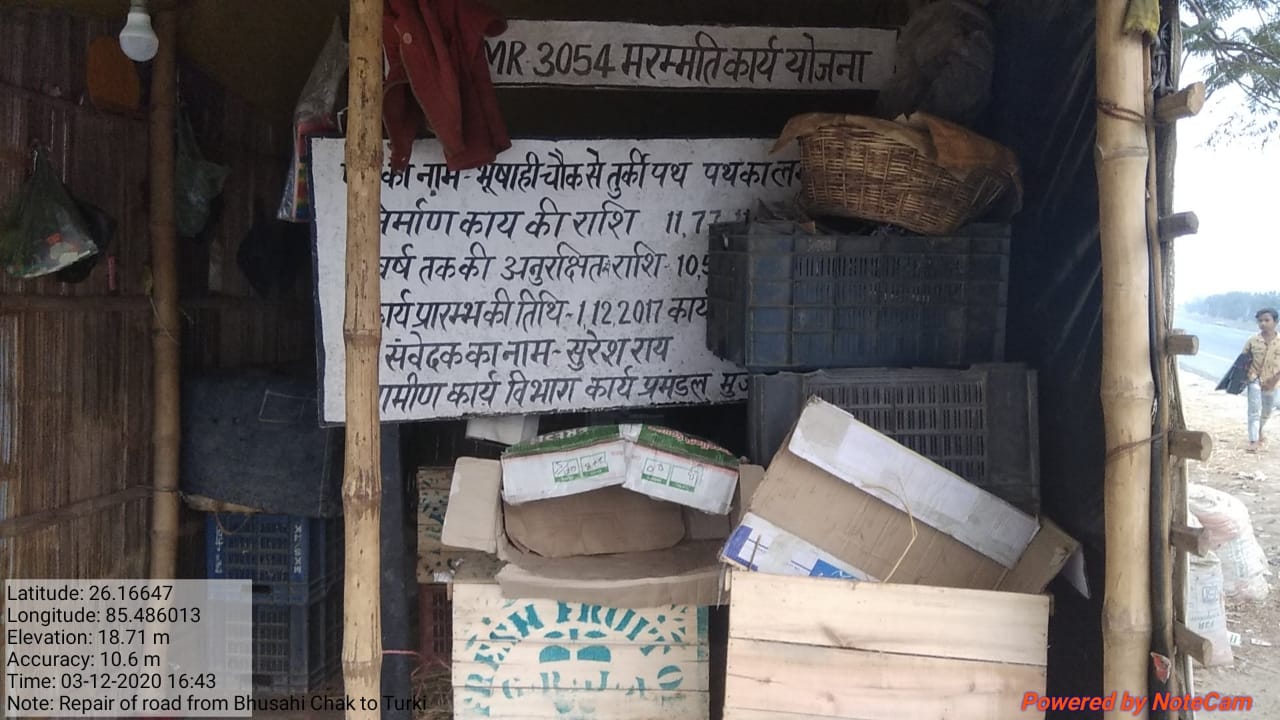 MR 3054 मरम्मति कार्य योजना
का नाम - भूषाही चौक से तुर्की पथ पथ का
निर्माण काय की राशि 11.77
वर्ष तक की अनुरक्षित राशि - 10.9
कार्य प्रारम्भ की तिथि - 1.12.2017 कार्य
संवेदक का नाम - सुरेश राय
ग्रामीण कार्य विभाग कार्य प्रमंडल
FRESH FRUIT
Latitude: 26.16647
Longitude: 85.486013
Elevation: 18.71 m
Accuracy: 10.6 m
Time: 03-12-2020 16:43
Note: Repair of road from Bhusahi Chak to Turki
Powered by NoteCam